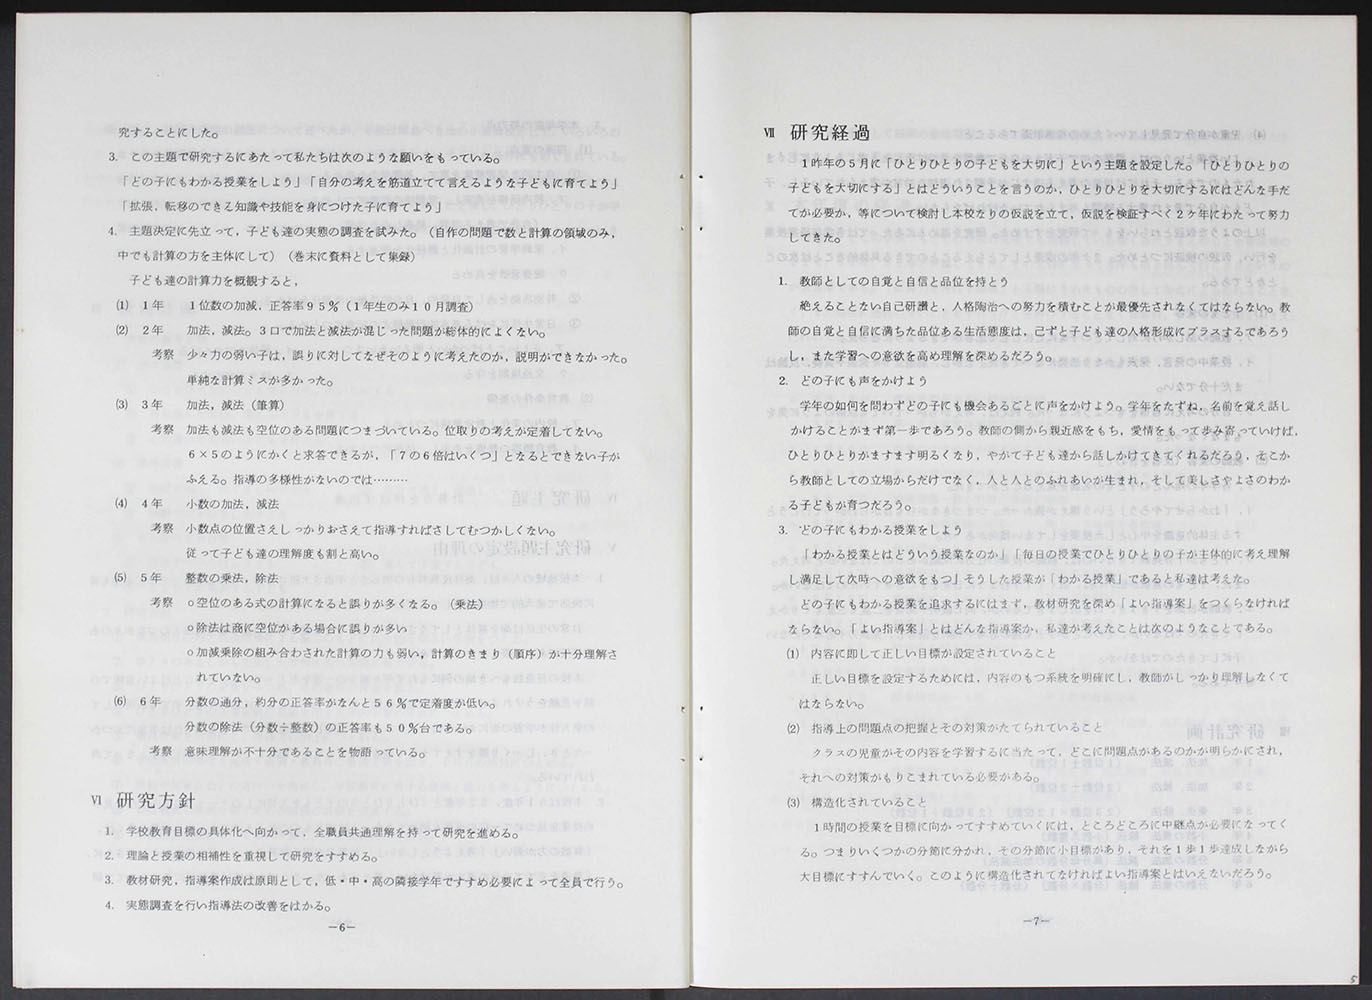 究することにした。
3. この主題で研究するにあたって私たちは次のような願いをもっている。
「どの子にもわかる授業をしよう」「自分の考えを筋道立てて言えるような子どもに育てよう」
「拡張，転移のできる知識や技能を身につけた子に育てよう」
4. 主題決定に先立って，子ども達の実態の調査を試みた。（自作の問題で数と計算の領域のみ，
中でも計算の方を主体にして）（巻末に資料として集録）
子ども達の計算力を概観すると，
(1) 1年 1位数の加減，正答率95％（1年生のみ10月調査）
(2) 2年 加法，減法。3口で加法と減法が混じった問題が総体的によくない。
考察 少々力の弱い子は，誤りに対してなぜそのように考えたのか，説明ができなかった。
単純な計算ミスが多かった。
(3) 3年 加法，減法（筆算）
考察 加法も減法も空位のある問題につまづいている。位取りの考えが定着してない。
6×5のようにかくと求答できるが，「7の6倍はいくつ」となるとできない子が
ふえる。指導の多様性がないのでは………
(4) 4年 小数の加法，減法
考察 小数点の位置さえしっかりおさえて指導すればさしてむつかしくない。
従って子ども達の理解度も割と高い。
(5) 5年 整数の乗法，除法
考察 ○空位のある式の計算になると誤りが多くなる。（乗法）
○除法は商に空位がある場合に誤りが多い
○加減乗除の組み合わされた計算の力も弱い，計算のきまり（順序）が十分理解さ
れていない。
(6) 6年 分数の通分，約分の正答率がなんと56％で定着度が低い。
分数の除法（分数÷整数）の正答率も50％台である。
考察 意味理解が不十分であることを物語っている。
Ⅵ 研究方針
1. 学校教育目標の具体化へ向かって，全職員共通理解を持って研究を進める。
2. 理論と授業の相補性を重視して研究をすすめる。
3. 教材研究，指導案作成は原則として，低・中・高の隣接学年ですすめ必要によって全員で行う。
4. 実態調査を行い指導法の改善をはかる。
—6—
Ⅶ 研究経過
1昨年の5月に「ひとりひとりの子どもを大切に」という主題を設定した。「ひとりひとりの
子どもを大切にする」とはどういうことを言うのか，ひとりひとりを大切にするにはどんな手だ
てが必要か，等について検討し本校なりの仮説を立て，仮説を検証すべく2ケ年にわたって努力
してきた。
1. 教師としての自覚と自信と品位を持とう
絶えることない自己研讃と，人格陶治への努力を積むことが最優先されなくてはならない。教
師の自覚と自信に満ちた品位ある生活態度は，己ずと子ども達の人格形成にプラスするであろう
し，また学習への意欲を高め理解を深めるだろう。
2. どの子にも声をかけよう
学年の如何を問わずどの子にも機会あるごとに声をかけよう。学年をたずね，名前を覚え話し
かけることがまず第一歩であろう。教師の側から親近感をもち，愛情をもって歩み寄っていけば，
ひとりひとりがますます明るくなり，やがて子ども達から話しかけてきてくれるだろう，そこか
ら教師としての立場からだけでなく，人と人とのふれあいが生まれ，そして美しさやよさのわか
る子どもが育つだろう。
3. どの子にもわかる授業をしよう
「わかる授業とはどういう授業なのか」「毎日の授業でひとりひとりの子が主体的に考え理解
し満足して次時への意欲をもつ」そうした授業が「わかる授業」であると私達は考えた。
どの子にもわかる授業を追求するにはまず，教材研究を深め「よい指導案」をつくらなければ
ならない。「よい指導案」とはどんな指導案か，私達が考えたことは次のようなことである。
(1) 内容に即して正しい目標が設定されていること
正しい目標を設定するためには，内容のもつ系統を明確にし，教師がしっかり理解しなくて
はならない。
(2) 指導上の問題点の把握とその対策がたてられていること
クラスの児童がその内容を学習するに当たって，どこに問題点があるのかが明らかにされ，
それへの対策がもりこまれている必要がある。
(3) 構造化されていること
1時間の授業を目標に向かってすすめていくには，ところどころに中継点が必要になってく
る。つまりいくつかの分節に分かれ，その分節に小目標があり，それを1歩1歩達成しながら
大目標にすすんでいく。このように構造化されてなければよい指導案とはいえないだろう。
—7—
5